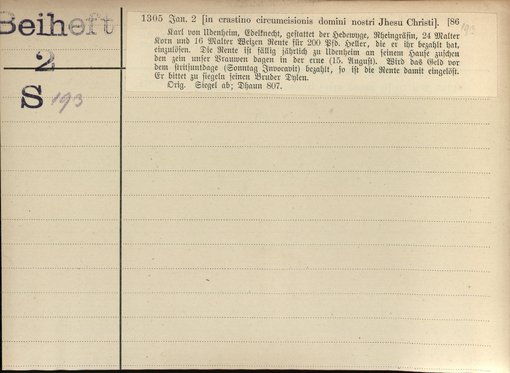 Beiheft
2
S 193
1305 Jan. 2 [in crastino circumcisionis domini nostri Jhesu Christi]. [86
193
Karl von Udenheim, Edelknecht, gestattet der Hedewyge, Rheingräfin, 24 Malter
Korn und 16 Malter Weizen Rente für 200 Pfd. Heller, die er ihr bezahlt hat,
einzulösen. Die Rente ist fällig jährlich zu Udenheim an seinem Hause zuschen
den zein unser Vrauwen dagen in der erne (15. August). Wird das Geld vor
dem stritsuntdage (Sonntag Invocavit) bezahlt, so ist die Rente damit eingelöst.
Er bittet zu siegeln seinen Bruder Dylen.
Orig. Siegel ab; Dhaun 807.